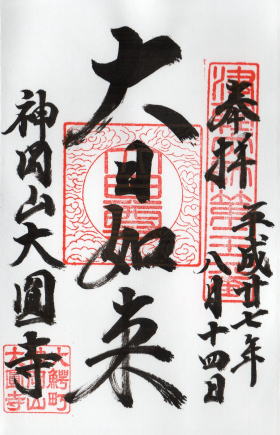 奉拝
平成廿七年
八月十四日
大日如来
神岡山大圓寺
大鰐町
神岡山
大圓寺